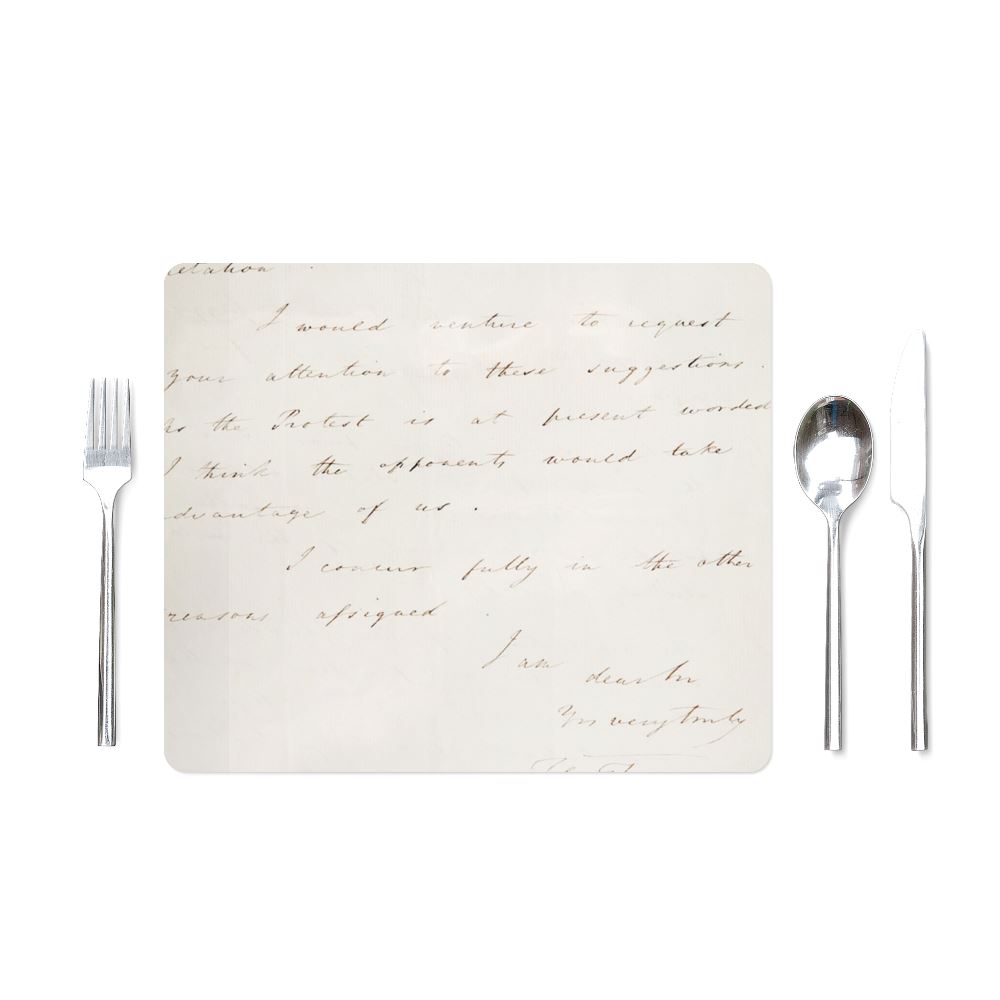 I would venture to request
your attention to these suggestions.
As the Protest is at present worded
I think the opponents would take
advantage of us.
I concur fully in the other
reasons assigned.
I am dear Sir
Yrs very truly